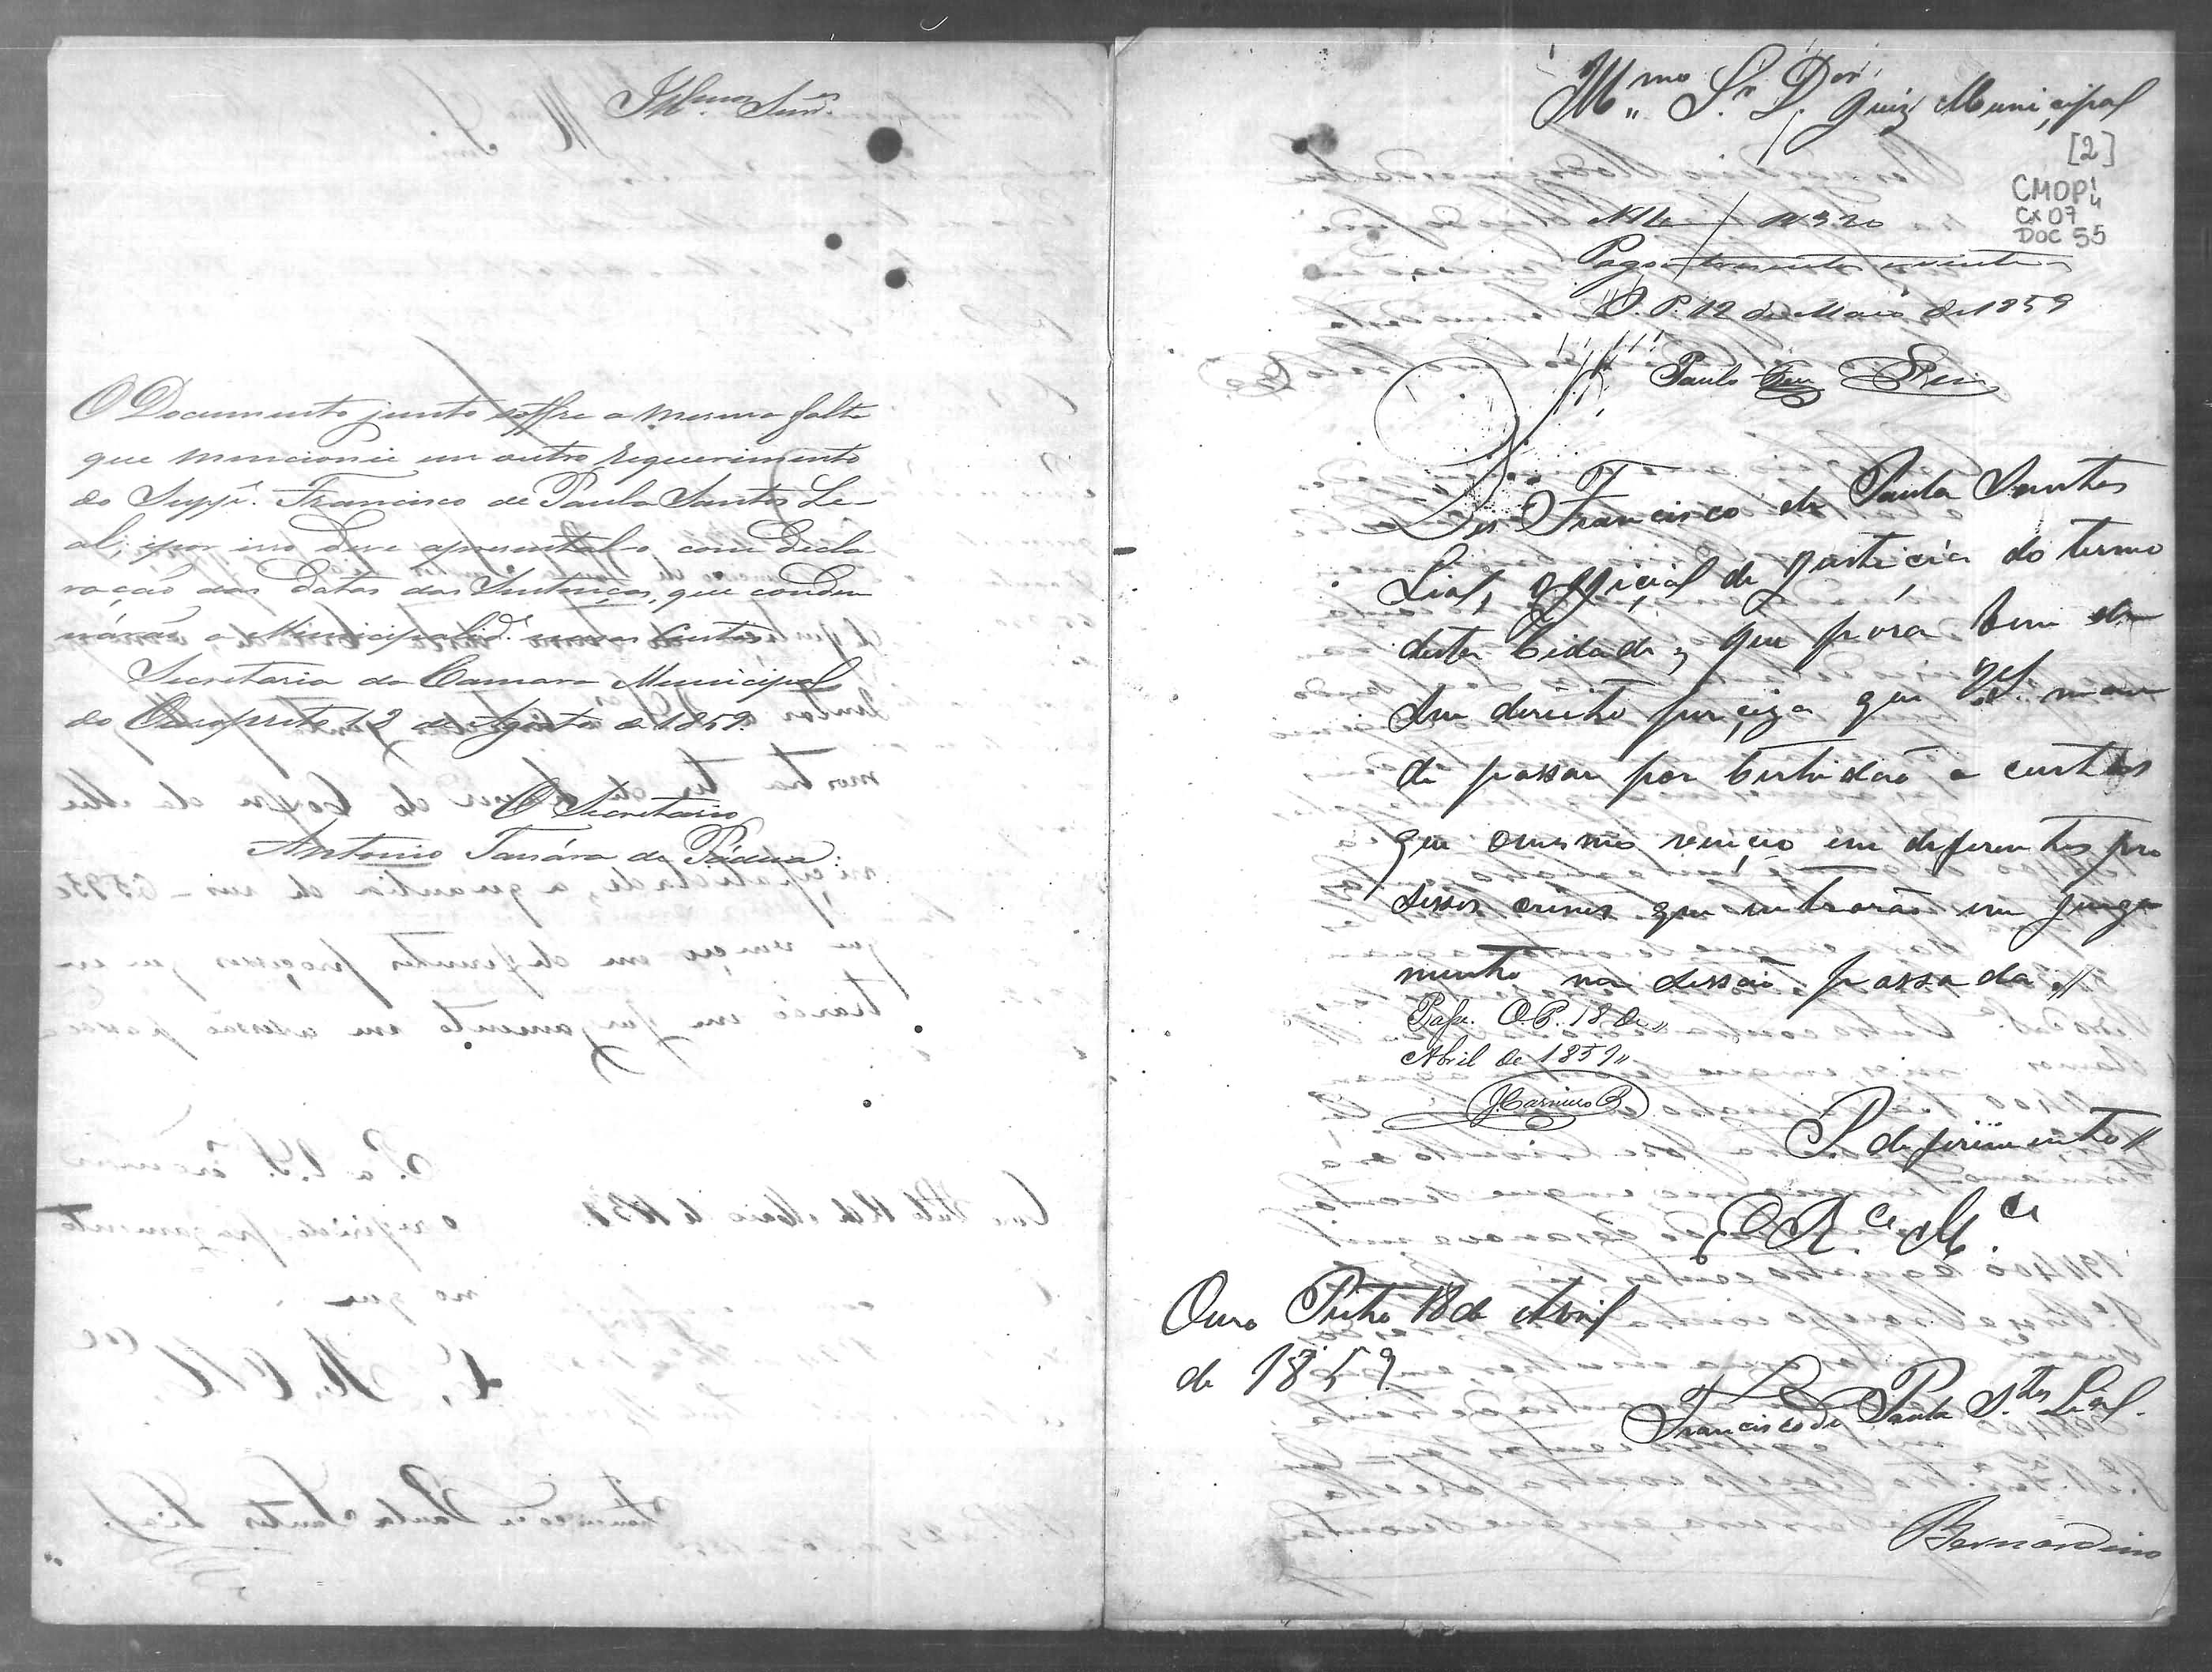 Illmos Snres
O Documento junto soffre a mesma falta
que mencionei em outro requerimento
do Suppe. Francisco de Paula Santos Le-
al; e por isso deve apresental-o com decla-
ração das datas das Sentenças, que conden
nárão a Municipalide. nas custas
Secretaria da Camara Municipal
do Ouropreto 12 de Agosto de 1859.
O Secretario
Antonio de Padua
Illmo Sr. Dor Juiz Municipal
[2]
CMOP
Cx 07
DOC 55
N 320
Pagou trezentos e vinte rs
O. P. 12 de Maio de 1859
Paulo Reis
Diz Francisco de Paula Santos
Lial, official de justicia do termo
desta Cidade, que para bem de
seu direito perciza que VS. man
de passar por Certidão a custas
que o mesmo vençeo em deferentes pro
sessos crimes que entrarão em julga
mento na sessão passada //
Passe. O.P. 18 de
Abril de 1859 //
J Carneiro
P. deferimento //
E R. Ce M. Ce
Ouro Preto 18 de Abril
de 1859
Francisco de Paula Stos Lial.
Bernardino